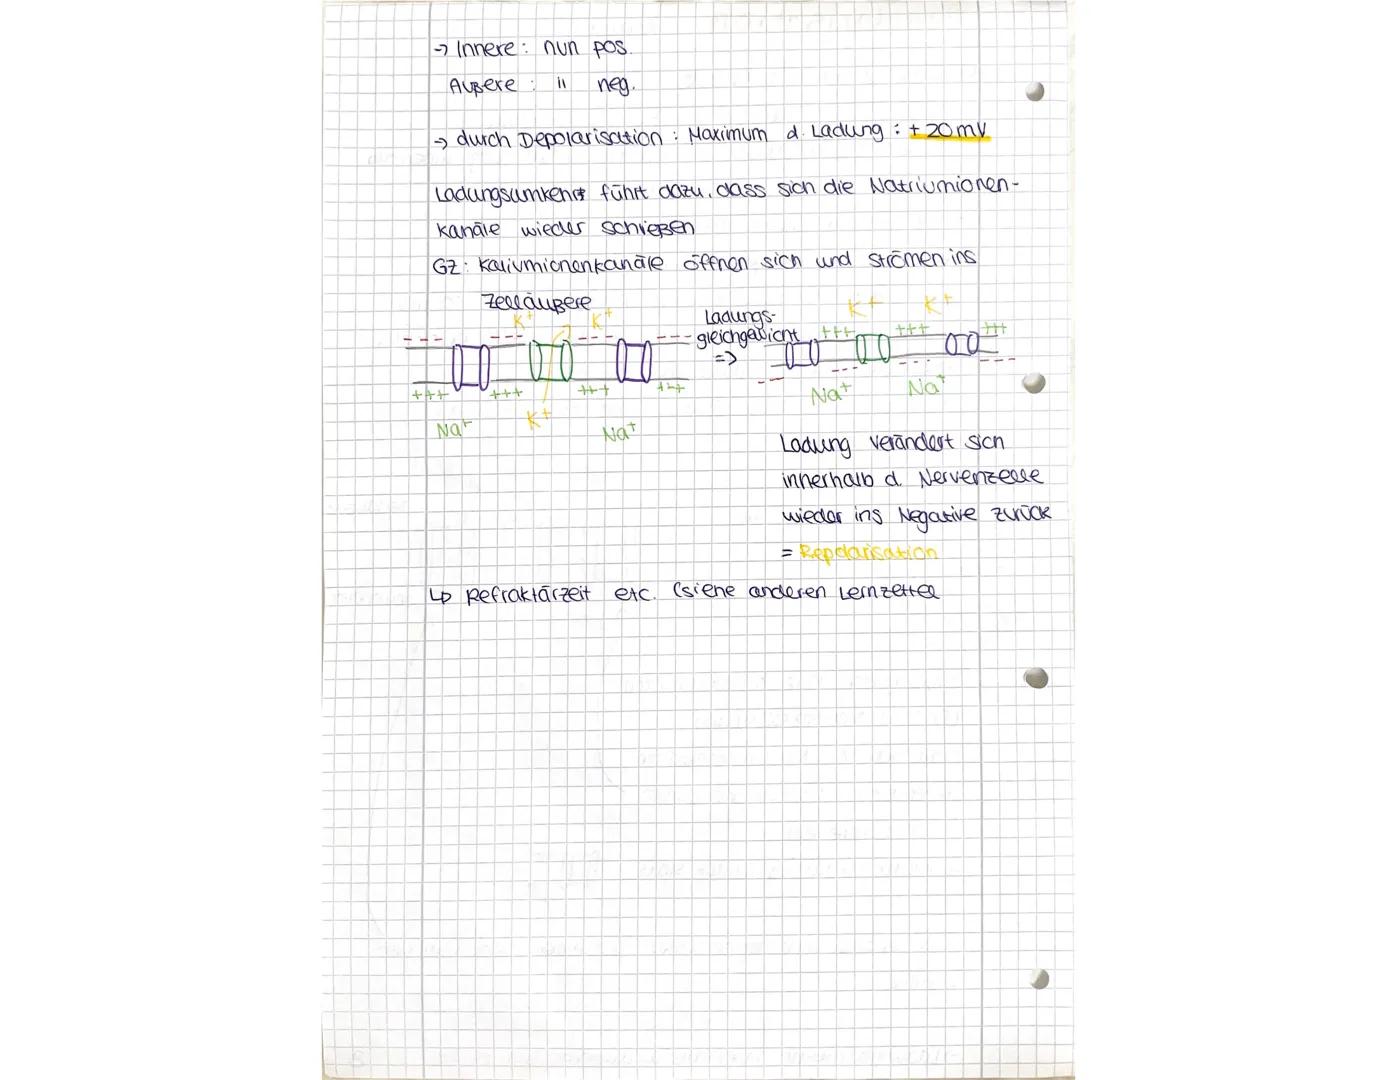 → Innere: nun pos.
Äußere: " neg.
→ durch Depolarisation: Maximum d. Ladung: + 20mV
Ladungsumkehr führt dazu, dass sich die Natriumionen-
kanäle wieder schließen
GZ: Kaliumionenkanäle öffnen sich und strömen ins
Zelläußere
K+ K+
--- --- --- ---
+++ +++ +++ +++
Na+ K+ Na+
Ladungs-
gleichgewicht
=>
K+ K+
+++ +++ +++
-- --- --- ---
Na+ Na+
Ladung verändert sich
innerhalb d. Nervenzelle
wieder ins Negative zurück
= Repolarisation
↳ Refraktärzeit etc. (siehe anderen Lernzettel